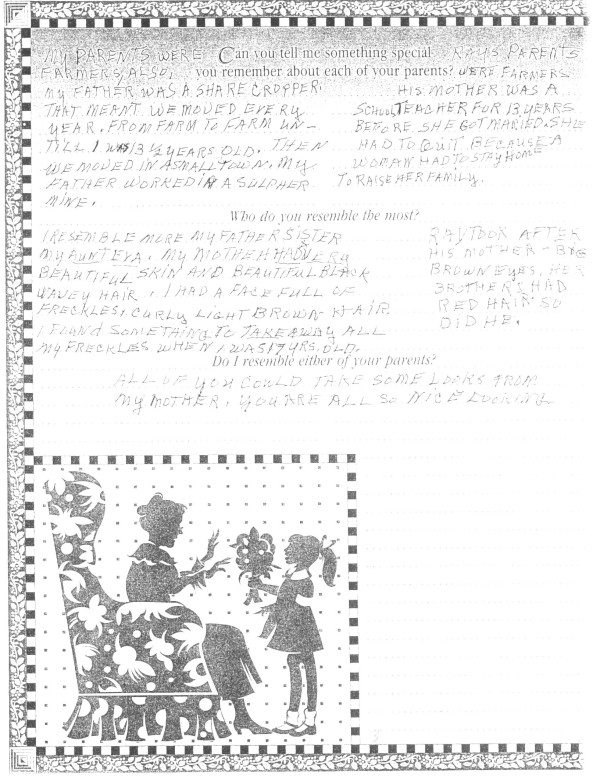 Can you tell me something special
you remember about each of your parents?
MY PARENTS WERE
FARMERS, ALSO,
MY FATHER WAS A SHARE CROPPER.
THAT MEANT WE MOVED EVERY
YEAR, FROM FARM TO FARM UN-
TILL I WAS 13 1/2 YEARS OLD. THEN
WE MOVED IN A SMALL TOWN, MY
FATHER WORKED IN A SULPHER
MINE.
RAYS PARENTS
WERE FARMERS
HIS MOTHER WAS A
SCHOOL TEACHER FOR 13 YEARS
BEFORE SHE GOT MARIED. SHE
HAD TO QUIT BECAUSE A
WOMAN HAD TO STAY HOME
TO RAISE HER FAMILY.
Who do you resemble the most?
I RESEMBLE MORE MY FATHER SISTER
MY AUNT EVA. MY MOTHER HAD VERY
BEAUTIFUL SKIN AND BEAUTIFUL BLACK
WAVEY HAIR. I HAD A FACE FULL OF
FRECKLES, CURLY LIGHT BROWN HAIR.
I FOUND SOMETHING TO TAKE AWAY ALL
MY FRECKLES WHEN I WAS 17 YRS. OLD.
RAY TOOK AFTER
HIS MOTHER - BIG
BROWN EYES, HER
BROTHERS HAD
RED HAIR SO
DID HE.
Do I resemble either of your parents?
ALL OF YOU COULD TAKE SOME LOOKS FROM
MY MOTHER, YOU ARE ALL SO NICE LOOKING